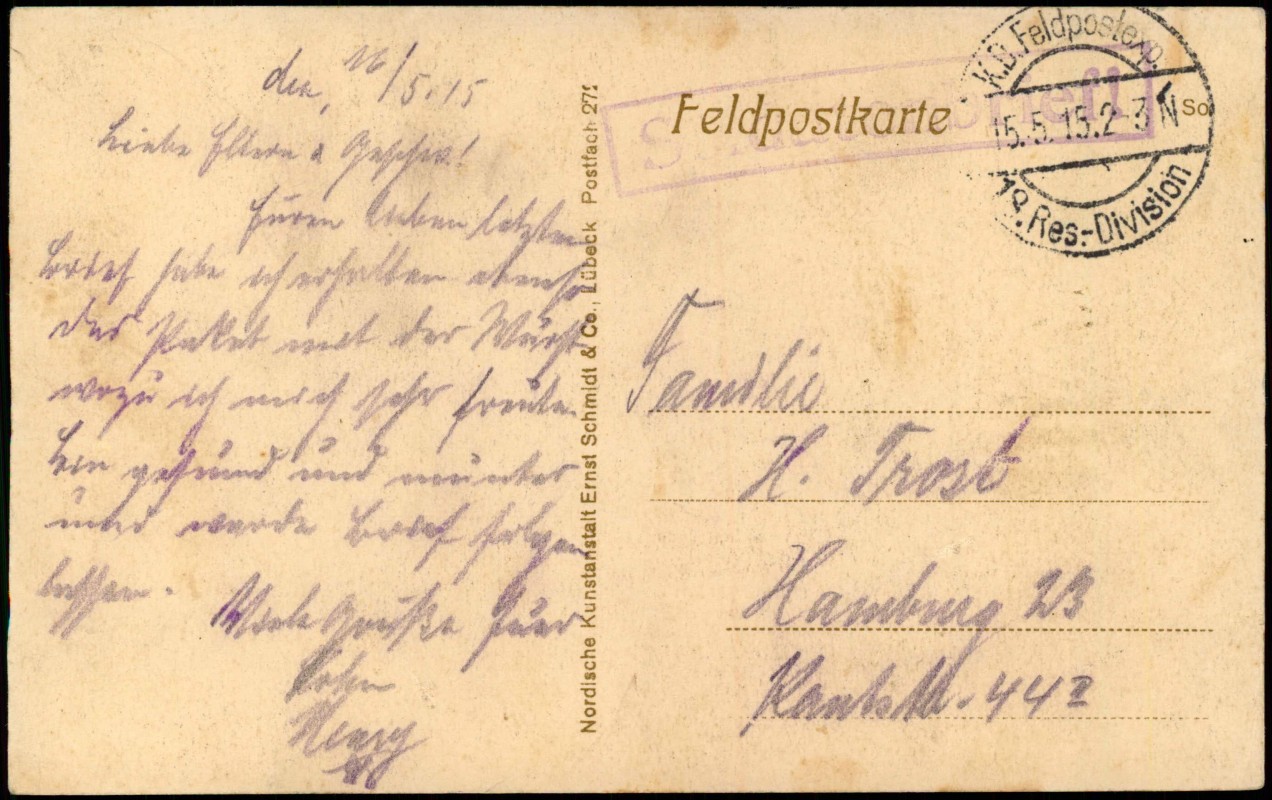 den, 16/5.15
Liebe Eltern & Geschw.!
Euren lieben letzten
Brief habe ich erhalten ebenso
das Paket mit der Wurst
wozu ich mich sehr freute.
Bin gesund und munter
und werde Brief folgen
lassen.
Viele Grüße Euer
Sohn
Henry
Nordische Kunstanstalt Ernst Schmidt & Co., Lübeck Postfach 272
Feldpostkarte
K.D. Feldpostexp.
15.5.15.2-3N
Res.-Division
So
Familie
H. Trost
Hamburg 23
Kantstr. 44 II